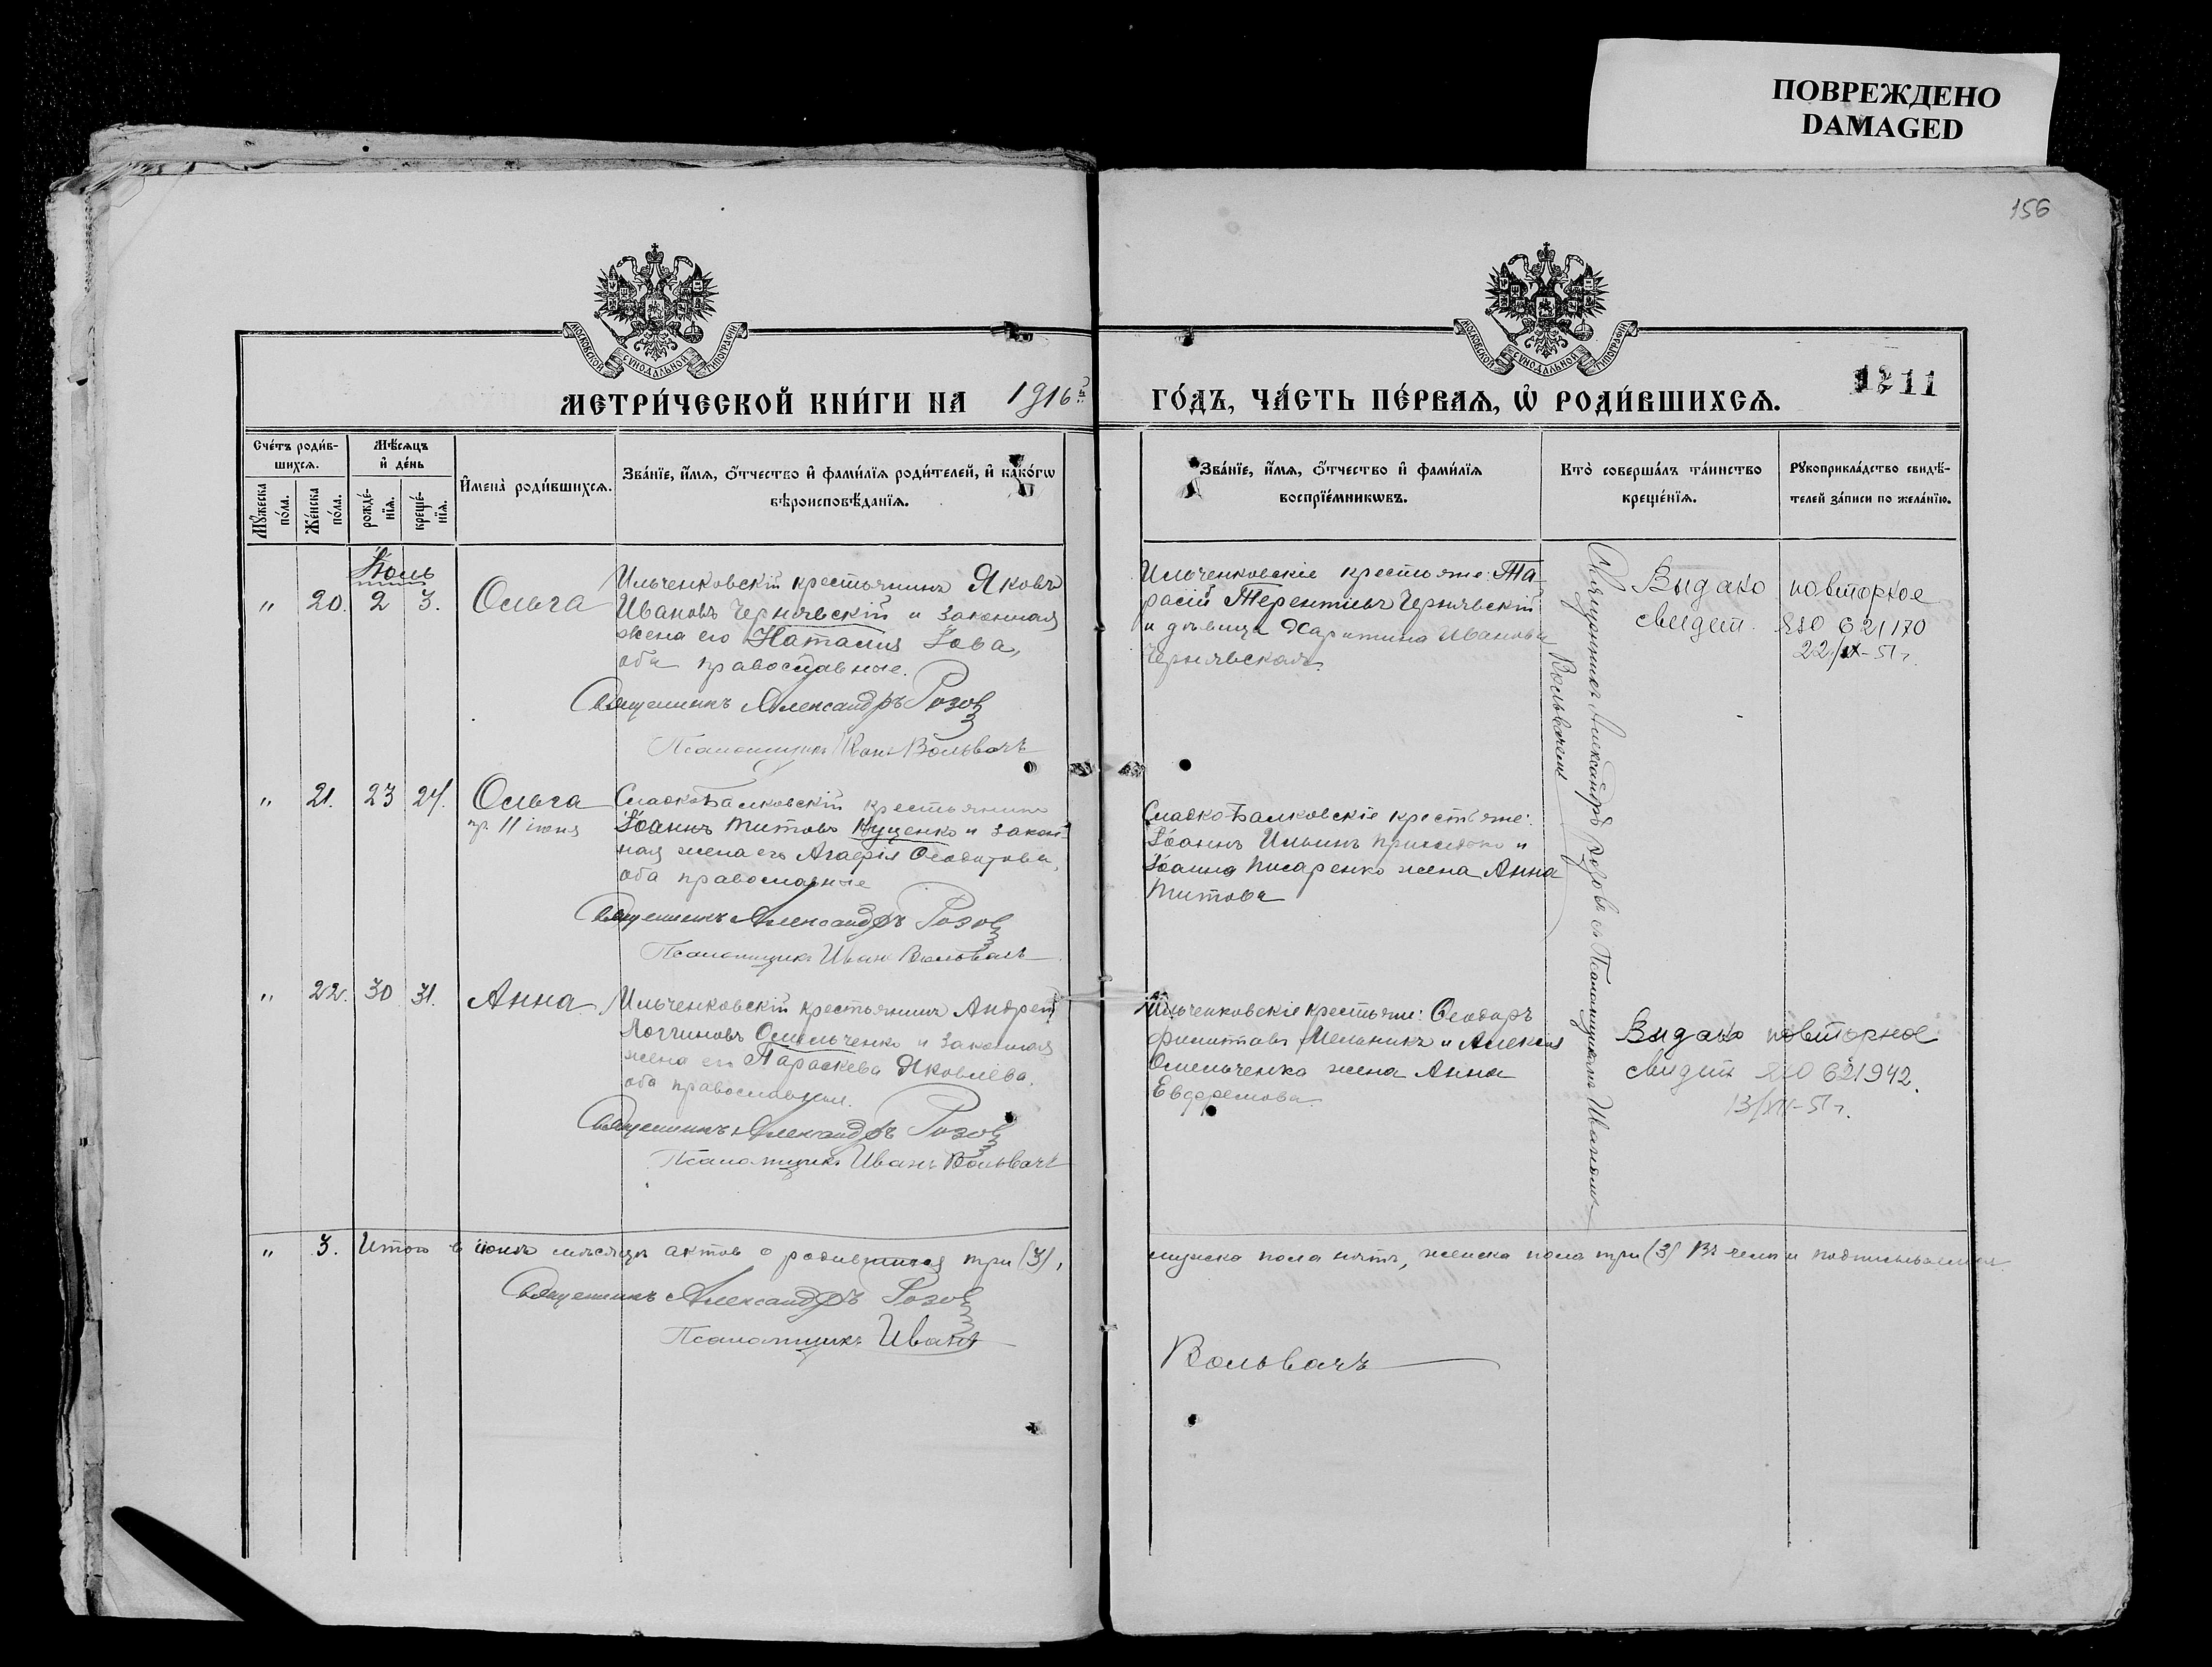 ПОВРЕЖДЕНО
DAMAGED
156
МОСКОВСКОЙ СѴНОДАЛЬНОЙ ТИПОГРАФІИ
МОСКОВСКОЙ СѴНОДАЛЬНОЙ ТИПОГРАФІИ
МЕТРИ́ЧЕСКОЙ КНИ́ГИ НА 1916й
ГО́ДЪ, ЧА́СТЬ ПЕ́РВАѦ, Ѡ҆ РОДИ́ВШИХСѦ.
1211
Сче́тъ роди́в-
шихсѧ.
Мꙋ́жеска
по́ла.
Же́нска
по́ла.
Мѣ́сѧцъ
и҆ де́нь
рожде́-
нїѧ.
креще́-
нїѧ.
И҆мена̀ роди́вшихсѧ.
Зва́нїе, и҆́мѧ, ѻ҆́тчество и҆ фами́лїѧ роди́телей, и҆ како́гѡ
вѣроисповѣ́данїѧ.
Зва́нїе, и҆́мѧ, ѻ҆́тчество и҆ фами́лїѧ
воспрїе́мникѡвъ.
Кто̀ соверша́лъ та́инство
креще́нїѧ.
Рꙋкоприкла́дство свидѣ́-
телей за́писи по жела́нїю.
Іюль
" 20. 2 3. Ольга
Ильченковскій крестьянинъ Яковъ
Ивановъ Чернявскій и законная
жена его Наталия Іова,
оба православные.
Священникъ Александръ Розов
Псаломщикъ Иванъ Вольвачъ
Ильченковскіе крестьяне: Та-
расій Терентіевъ Чернявскій
и дѣвица Харитина Иванова
Чернявская.
Священникъ Александръ Розовъ съ Псаломщикомъ Иваномъ
Вольвачемъ
Выдано повторное
свидет. 621170
22/IX-51г.
" 21. 23 24. Ольга
пр. 11 июля
СладкоБалковскій крестьянинъ
Іоаннъ Титовъ Куценко и закон-
ная жена его Агафія Ѳеодотова,
оба православные
Священникъ Александръ Розов
Псаломщикъ Иванъ Вольвачъ
СладкоБалковскіе крестьяне:
Іоаннъ Ильинъ и
Іоанна Писаренко жена Анна
Титова
" 22. 30 31. Анна
Ильченковскій крестьянинъ Андрей
Логгиновъ Омельченко и законная
жена его Параскева Яковлева.
оба православные.
Священникъ Александръ Розов
Псаломщикъ Иванъ Вольвачъ
Ильченковскіе крестьяне: Ѳеодоръ
Мельникъ и Алексія
Омельченка жена Анна
Евфремова.
Выдано повторное
свидет 621942.
13/XII-51г.
" 3. Итого в іюлѣ мѣсяцѣ актов о родившихся три (3),
мужска пола нѣтъ, женска пола три (3) Въ чемъ и подписываемся.
Священникъ Александръ Розов
Псаломщикъ Иванъ
Вольвачъ